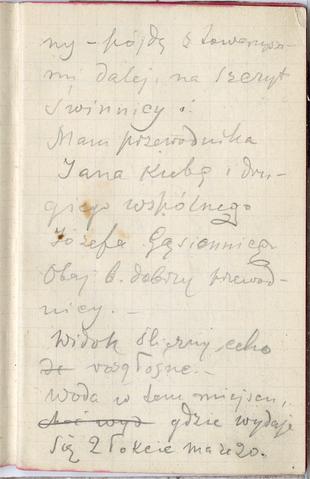 ny – pójdę z towarzysza-
mi dalej, na szczyt
Świnnicy i
Mam przewodnika
Jana Kubę i dru-
giego wspólnego
Józefa Gąsienicę.
Obaj b. dobrzy przewod-
nicy. –
Widok śliczny, echo
rozgłośne. –
Woda w tem miejscu,
gdzie wydaje
się 2 łokcie ma 20.